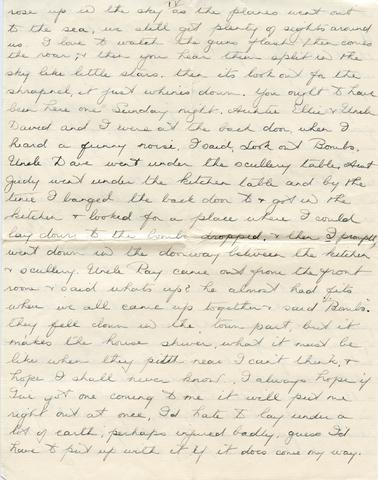 IV
rose up in the sky as the planes went out
to the sea, we still get plenty of sights around
us. I love to watch the guns flash, then comes
the roar, & then you hear them split in the
sky like little stars. then its look out for the
shrapnel, it just whines down. You ought to have
been here one Sunday night. Auntie Ellie & Uncle
David and I were at the back door, when I
heard a funny noise. I said, Look out Bombs.
Uncle Dave went under the scullery table, Aunt
Judy went under the kitchen table and by the
time I banged the back door to & got in the
kitchen & looked for a place where I could
lay down to the bombs dropped, & then I promptly
went down in the doorway between the kitchen
& scullery. Uncle Ray came out from the front
room & said whats up? he almost had fits
when we all came up together & said "Bombs".
they fell down in the town part, but it
makes the house shiver, what it must be
like when they pitch near I can't think, &
hope I shall never know. I always hope if
I've got one coming to me it will put me
right out at once, I'd hate to lay under a
lot of earth, perhaps injured badly, guess I'd
have to put up with it if it does come my way.